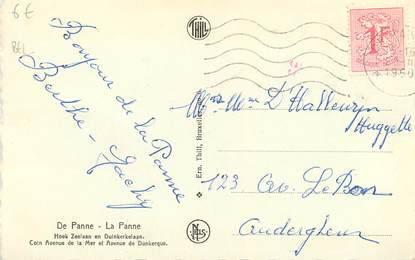 6€
BEL
THILL
Bonjour de la Panne
Berthe - Jacky
Ern. Thill, Bruxelles
1F
1950
Mr Mme D'Halleurin
Huggette
123 Av. Le Bon
Auderghem
De Panne - La Panne
Hoek Zeelaan en Duinkerkelaan.
Coin Avenue de la Mer et Avenue de Dunkerque.
NELS